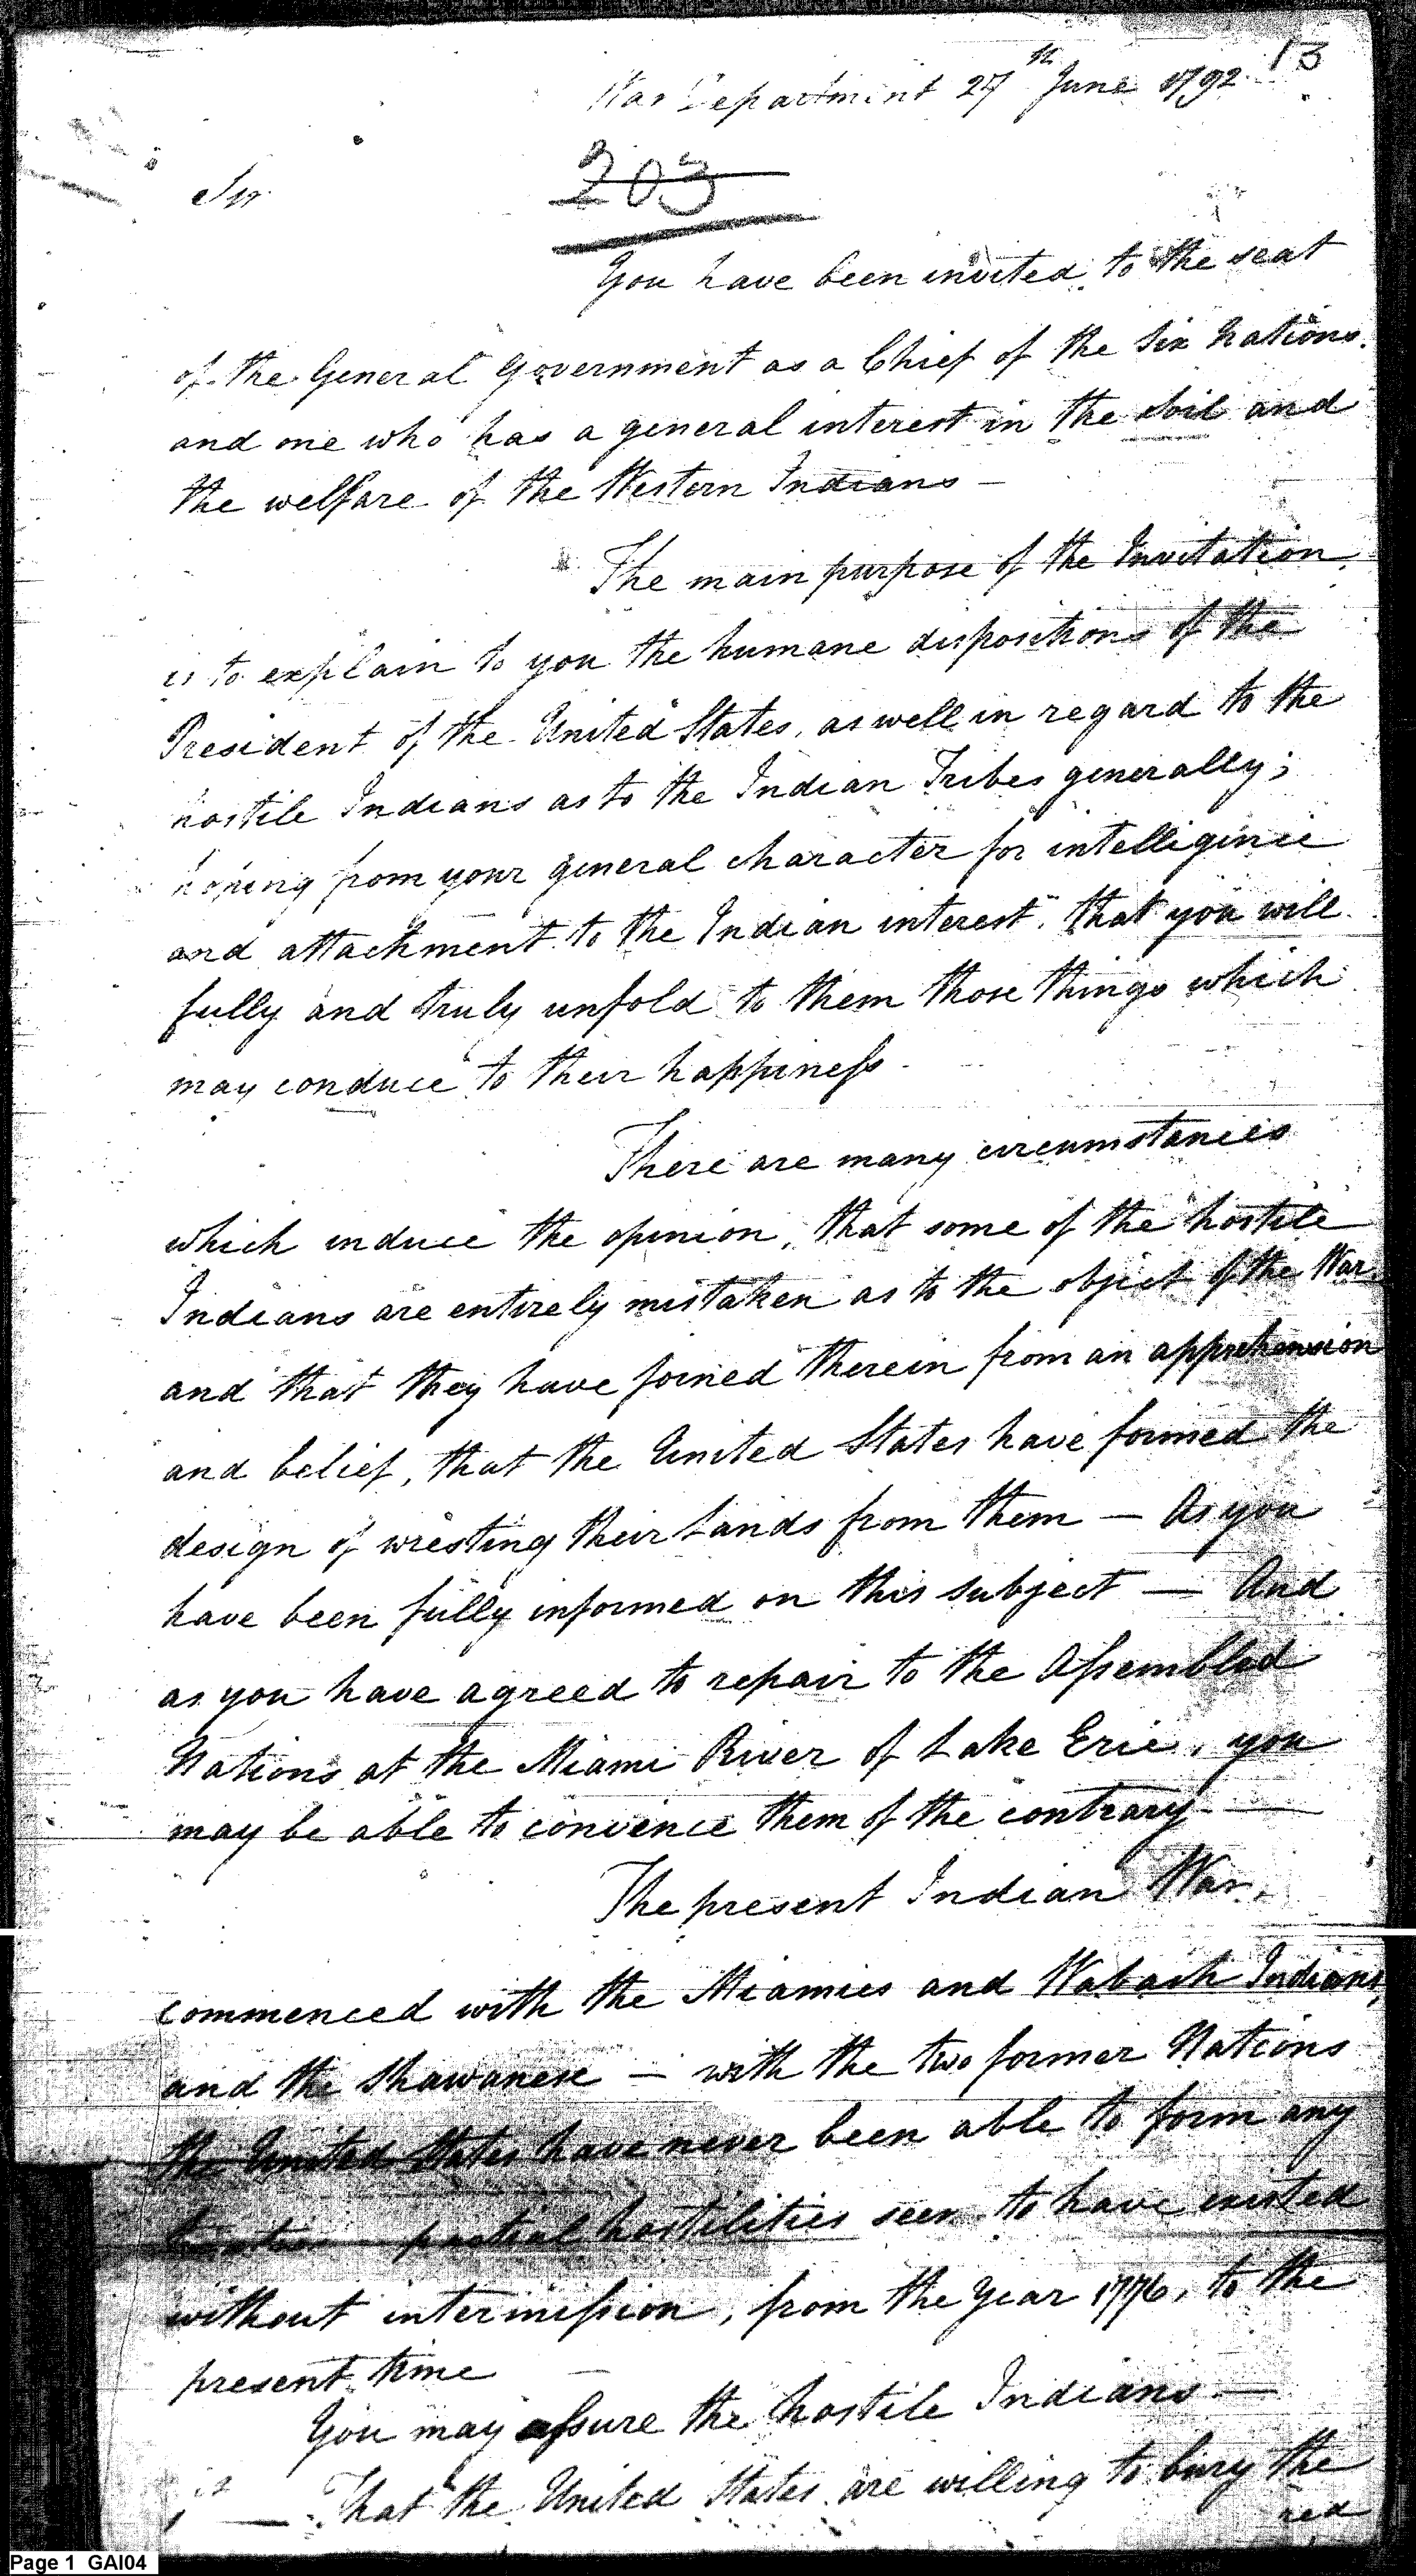 13
War Department 27th June 1792
203
Sir
You have been invited, to the seat
of the General Government as a Chief of the Six Nations.
and one who has a general interest in the Soil and
the welfare of the Western Indians —
The main purpose of the Invitation,
is to explain to you the humane dispositions of the
President of the United States, as well in regard to the
hostile Indians as to the Indian Tribes generally;
hoping from your general character for intelligence
and attachment to the Indian interest, that you will
fully and truly unfold to them those things which
may conduce to their happiness.
There are many circumstances
which induce the opinion, that some of the hostile
Indians are entirely mistaken as to the object of the War,
and that they have joined therein from an apprehension
and belief, that the United States have formed the
design of wresting their Lands from them — As you
have been fully informed on this subject — And
as you have agreed to repair to the Assembled
Nations at the Miami River of Lake Erie, you
may be able to convince them of the contrary —
The present Indian War,
commenced with the Miamies and Wabash Indians,
and the Shawanese — with the two former Nations
the United States have never been able to form any
treaties — partial hostilities seem to have existed
without intermission, from the Year 1776, to the
present time —
You may assure the hostile Indians —
1st — That the United States are willing to bury the
red
Page 1 GAI04